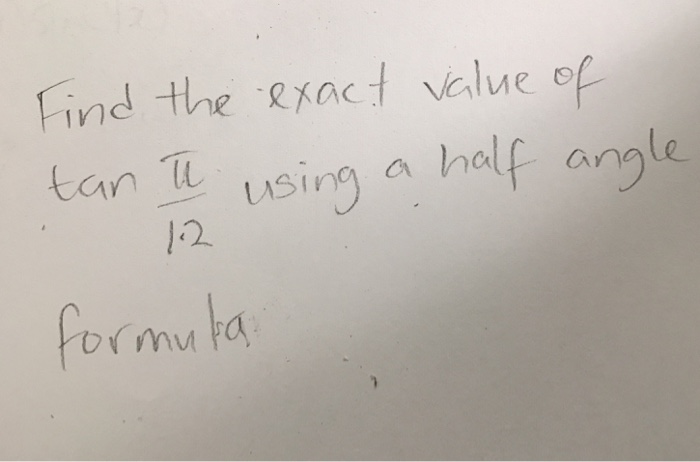 Find the exact value of
tan π/12 using a half angle
formula